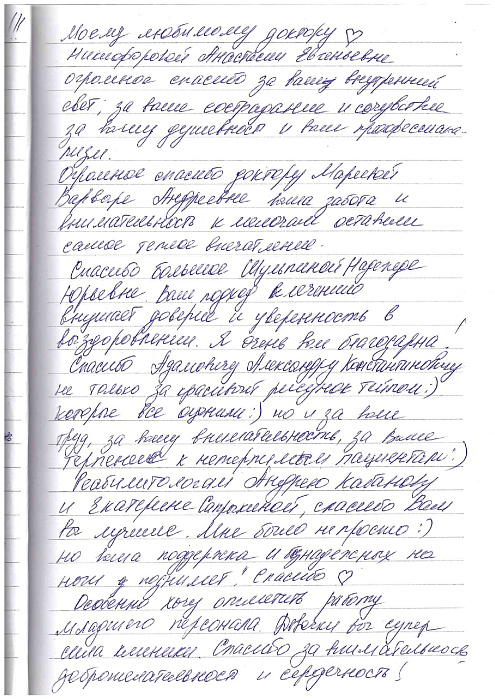 Моему любимому доктору ♡
Никифоровой Анастасии Евгеньевне
огромное спасибо за вашу внутренний
свет, за ваше сострадание и сочувствие
за вашу душевность и ваш профессиона-
лизм.
Огромное спасибо доктору Мареевой
Варваре Андреевне ваша забота и
внимательность к мелочам оставили
самое теплое впечатление.
Спасибо большое Шумпиной Надежде
Юрьевне. Ваш подход к лечению
внушает доверие и уверенность в
выздоровлении. Я очень вам благодарна!
Спасибо Адамовичу Александру Константиновичу
не только за красивый рисунок тейпом:)
которые все оценили:) но и за ваш
труд, за вашу внимательность, за Ваше
терпение к нетерпимым пациентам:)
Реабилитологам Андрею Кабанову
и Екатерине Сапрыкиной, спасибо Вам
Вы лучшие. Мне было непросто:)
но ваша поддержка и безнадежных на
ноги поднимет! Спасибо ♡
Особенно хочу отметить работу
младшего персонала. Девочки вы супер
сила клиники. Спасибо за внимательность
доброжелательность и сердечность!